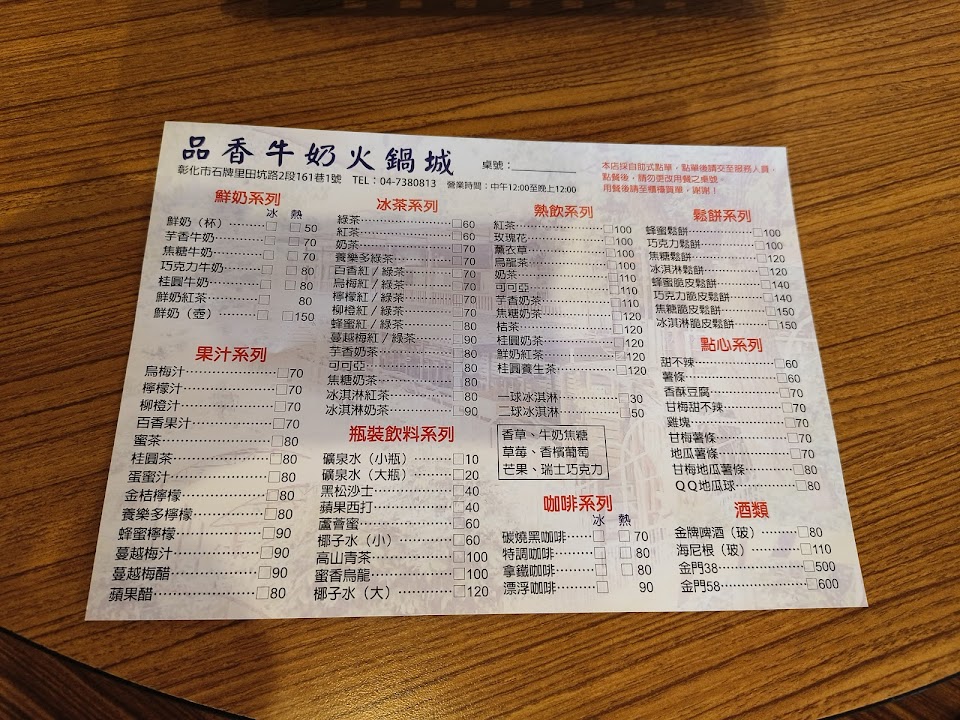 品香牛奶火鍋城
桌號：
彰化市石牌里田坑路2段161巷1號 TEL：04-7380813 營業時間：中午12:00至晚上12:00
本店採自助式點單，點單後請交至服務人員，
點餐後，請勿更改用餐之桌號。
用餐後請至櫃檯買單，謝謝！
鮮奶系列
冰 熱
鮮奶（杯）50
芋香牛奶 70
焦糖牛奶 70
巧克力牛奶 80
桂圓牛奶 80
鮮奶紅茶 80
鮮奶（壺）150
果汁系列
烏梅汁 70
檸檬汁 70
柳橙汁 70
百香果汁 70
蜜茶 80
桂圓茶 80
蛋蜜汁 80
金桔檸檬 80
養樂多檸檬 80
蜂蜜檸檬 90
蔓越梅汁 90
蔓越梅醋 90
蘋果醋 80
冰茶系列
綠茶 60
紅茶 60
奶茶 70
養樂多綠茶 70
百香紅/綠茶 70
烏梅紅/綠茶 70
檸檬紅/綠茶 70
柳橙紅/綠茶 70
蜂蜜紅/綠茶 80
蔓越梅紅/綠茶 90
芋香奶茶 80
可可亞 80
焦糖奶茶 80
冰淇淋紅茶 80
冰淇淋奶茶 90
瓶裝飲料系列
礦泉水（小瓶）10
礦泉水（大瓶）20
黑松沙士 40
蘋果西打 40
蘆薈蜜 60
椰子水（小）60
高山青茶 100
蜜香烏龍 100
椰子水（大）120
熱飲系列
紅茶 100
玫瑰花 100
薰衣草 100
烏龍茶 100
奶茶 110
可可亞 110
芋香奶茶 110
焦糖奶茶 120
桔茶 120
桂圓奶茶 120
鮮奶紅茶 120
桂圓養生茶 120
一球冰淇淋 30
二球冰淇淋 50
香草、牛奶焦糖
草莓、香檳葡萄
芒果、瑞士巧克力
咖啡系列
冰 熱
碳燒黑咖啡 70
特調咖啡 80
拿鐵咖啡 80
漂浮咖啡 90
鬆餅系列
蜂蜜鬆餅 100
巧克力鬆餅 100
焦糖鬆餅 120
冰淇淋鬆餅 120
蜂蜜脆皮鬆餅 140
巧克力脆皮鬆餅 140
焦糖脆皮鬆餅 150
冰淇淋脆皮鬆餅 150
點心系列
甜不辣 60
薯條 60
香酥豆腐 70
甘梅甜不辣 70
雞塊 70
甘梅薯條 70
地瓜薯條 70
甘梅地瓜薯條 80
QQ地瓜球 80
酒類
金牌啤酒（玻）80
海尼根（玻）110
金門38 500
金門58 600